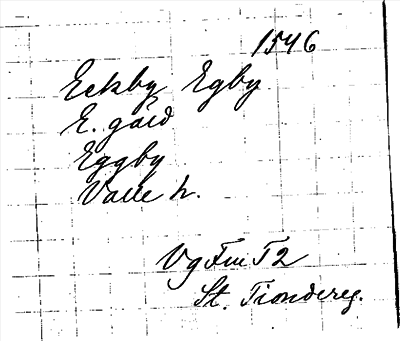 1546
Eckby, Egby
E. gård
Eggby
Valle h.
Vg Fm T2
St. Tiondereg.